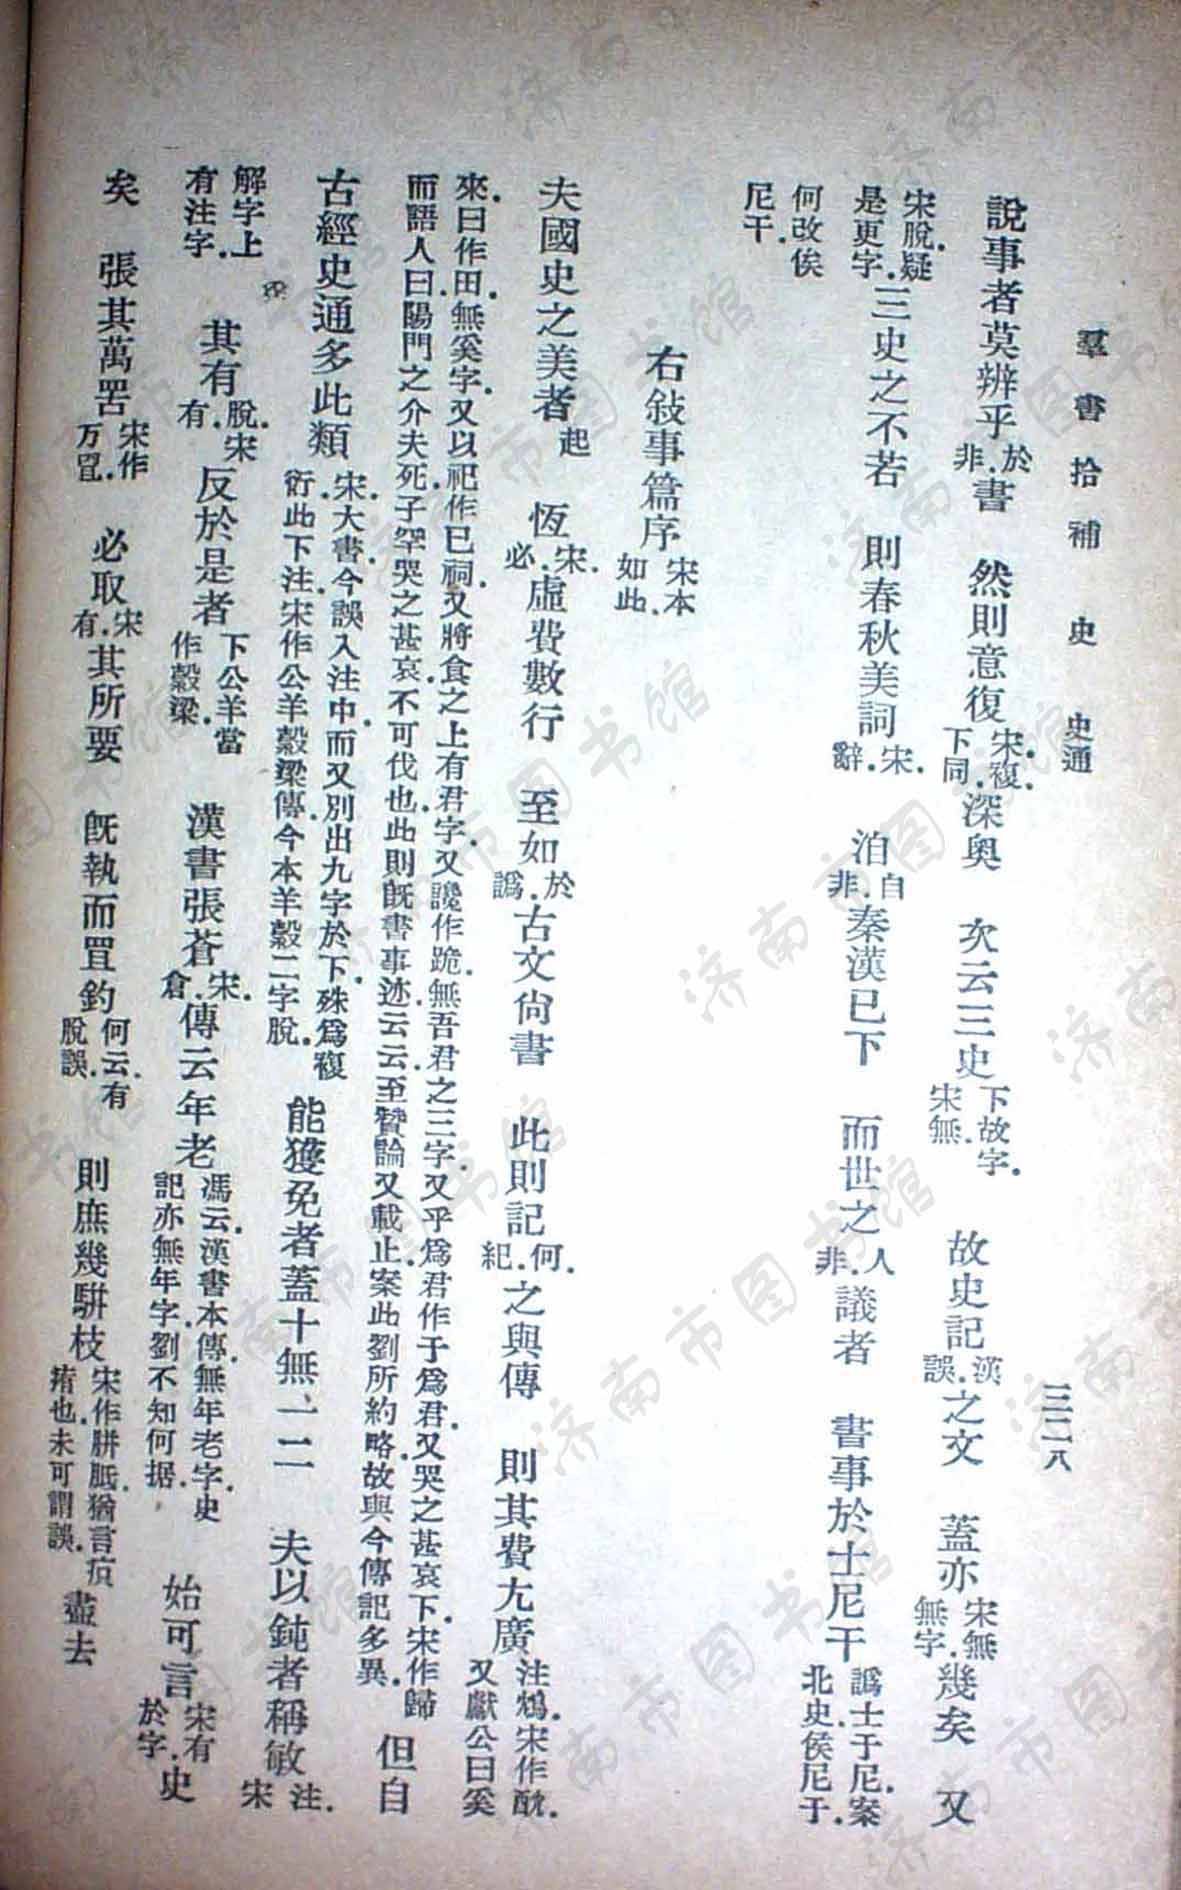 羣書拾補 史 史通 三二八
說事者莫辨乎於非書 然則意復宋複下同深奧 次云三史下故字宋無 故史記漢誤之文 蓋亦宋無無字幾矣 又
宋脫疑是更字三史之不若 則春秋美詞宋辭 洎自非秦漢已下 而世之人非議者 書事於士尼干譌士于尼案北史侯尼于
何改俟尼干
右敍事篇序宋本如此
夫國史之美者起 恆宋必虛費數行 至如於譌古文尙書 此則記何紀之與傳 則其費尢廣注鴆宋作酖又獻公曰奚
來曰作田無奚字又以祀作已祠又將食之上有君字又讒作跪無吾君之三字又乎爲君作于爲君又哭之甚哀下宋作歸
而語人曰陽門之介夫死子罕哭之甚哀不可伐也此則旣書事迹云云至贊論又載止案此劉所約略故與今傳記多異 但自
古經史通多此類宋大書今誤入注中而又別出九字於下殊爲複衍此下注宋作公羊穀梁傳今本羊穀二字脫 能獲免者蓋十無一二 夫以鈍者稱敏注宋
解字上有注字 其有脫宋有反於是者下公羊當作穀梁 漢書張蒼宋倉傳云年老馮云漢書本傳無年老字史記亦無年字劉不知何据 始可言宋有於字史
矣 張其萬罟宋作万罝 必取宋有其所要 旣執而罝釣何云有脫誤 則庶幾駢枝宋作胼胝猶言疻痏也未可謂誤 盡去
济南市图书馆